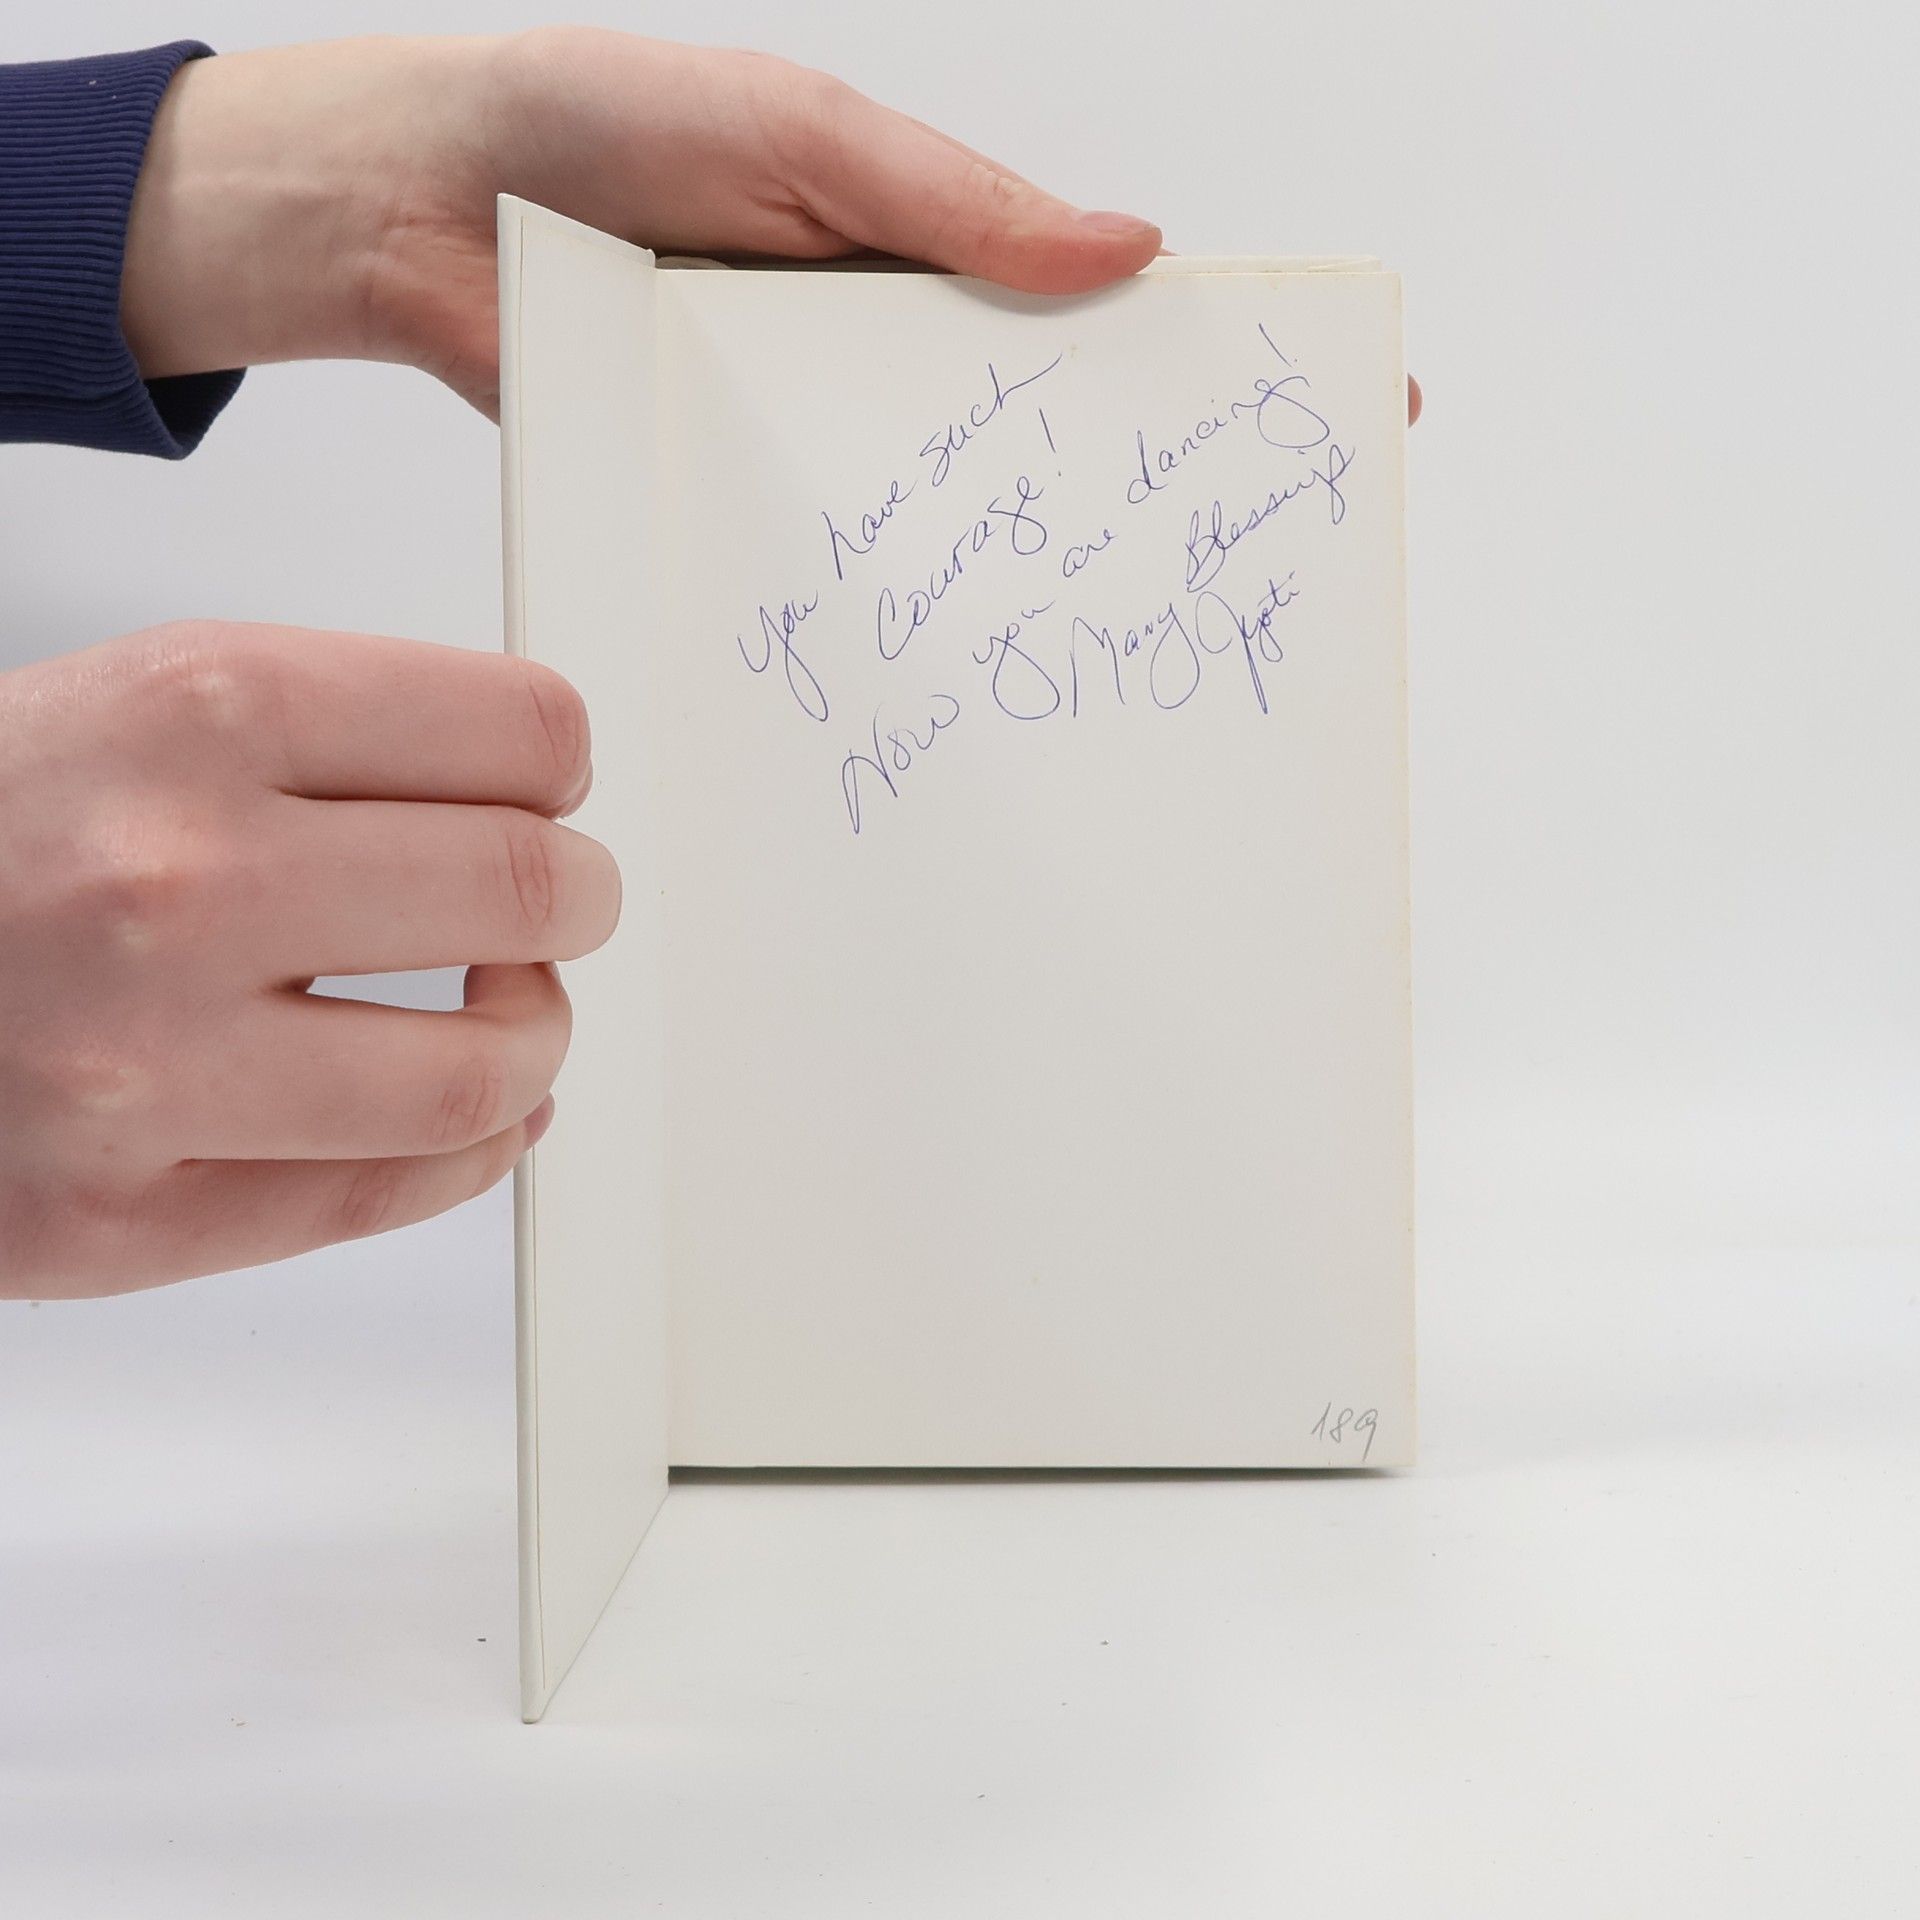 You have such
Courage!
Now you are dancing!
Many Blessings
Jyoti
189